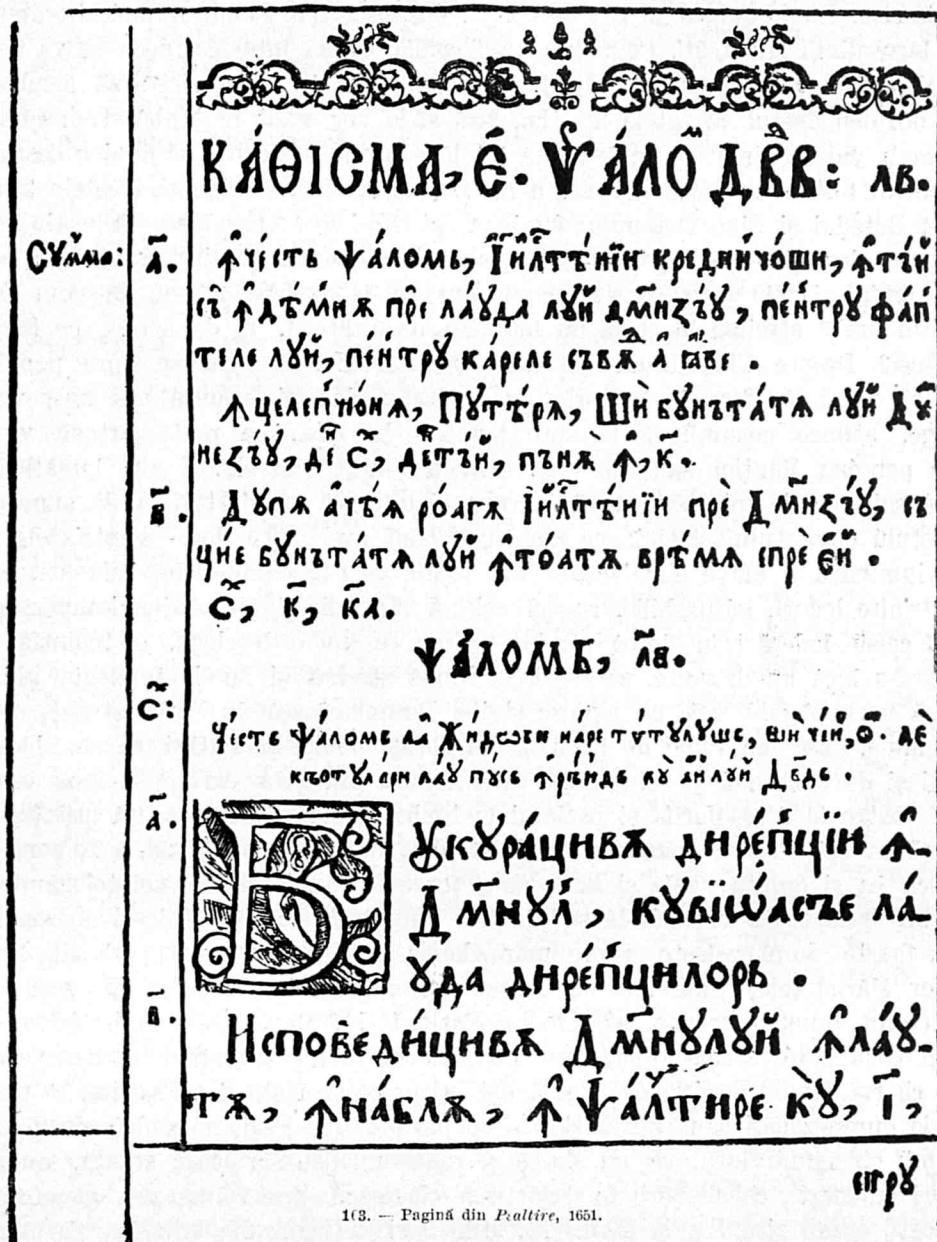 КА́ѲІСМА, Є҃. ѰАЛО ДВ҃В: лв.
Сꙋммо: а҃. ꙟче́сть ѱало́мь, І҆и҆лтѣ́нїи креди́нчо́ши, ꙟтъ́й
съ ꙟдѣ́мнѫ пре ла́ꙋда лꙋй дм҃неꙁъꙋ, пе́нтрꙋ фап
теле лꙋй, пе́нтрꙋ ка́реле съвѫ
ꙟцелепчїонѫ, Пꙋтѣ́рѫ, Ши бꙋнъта́тѫ лꙋй Дꙋ
неꙁъ́ꙋ, де с҃, детъ́й, пънѫ ꙟ, к҃.
в҃. Дꙋпѫ ачѣ́ѫ роагѫ І҆и҆лтѣ́нїи прѐ Дм҃неꙁъ́ꙋ, съ
цїе бꙋнъта́тѫ лꙋй ꙟтоатѫ врѣ́мѫ спре є҆й.
с҃, к, ка.
ѰА́ЛОМЬ, лв.
с҃:
Че́сть ѱа́ломь
лаꙋ пꙋсь ꙟ рънде кꙋ а́й лꙋй Дв҃дь.
а҃ Бꙋкꙋра́цивѫ дире́пцїи ꙟ
Дм҃нꙋл, кꙋвїѡасъе ла́
ꙋда дире́пцилорь.
в҃ Испове́дицивѫ Дм҃нꙋ́лꙋй ꙟлаꙋ
тѫ, ꙟна́блѫ, ꙟ Ѱалти́ре кꙋ, і҃,
стрꙋ
163. — Pagină din Psaltire, 1651.